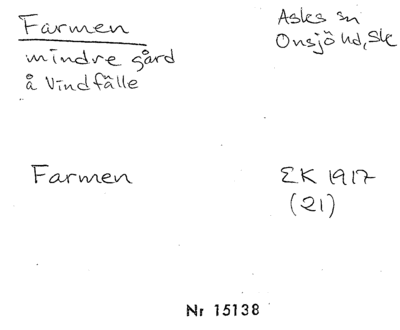 Farmen
Asks sn
Onsjö hd, Sk
mindre gård
å Vindfälle
Farmen
EK 1917
(21)
Nr 15138